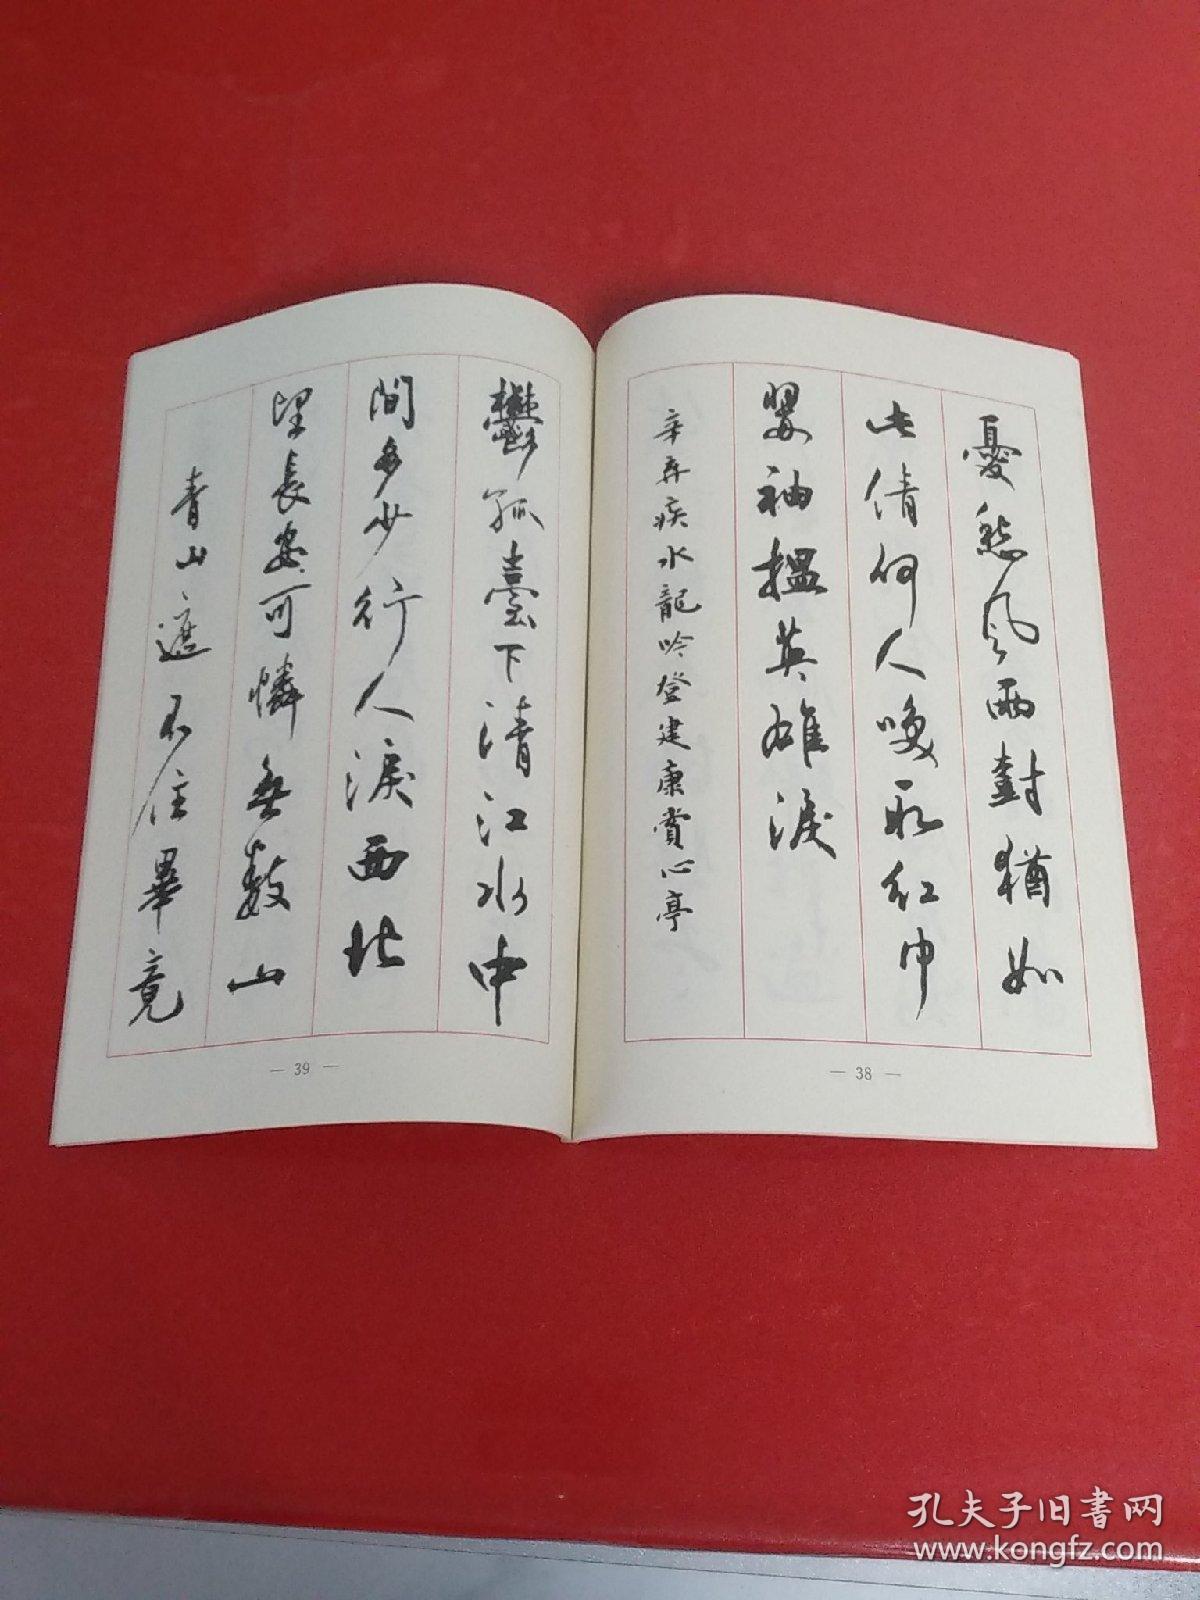 憂愁風雨對猶如
此倩何人喚取紅巾
翠袖搵英雄淚
辛弃疾水龍吟登建康賞心亭
— 38 —
鬱孤臺下清江水中
間多少行人淚西北
望長安可憐無數山
青山遮不住畢竟
— 39 —
孔夫子旧书网
www.kongfz.com